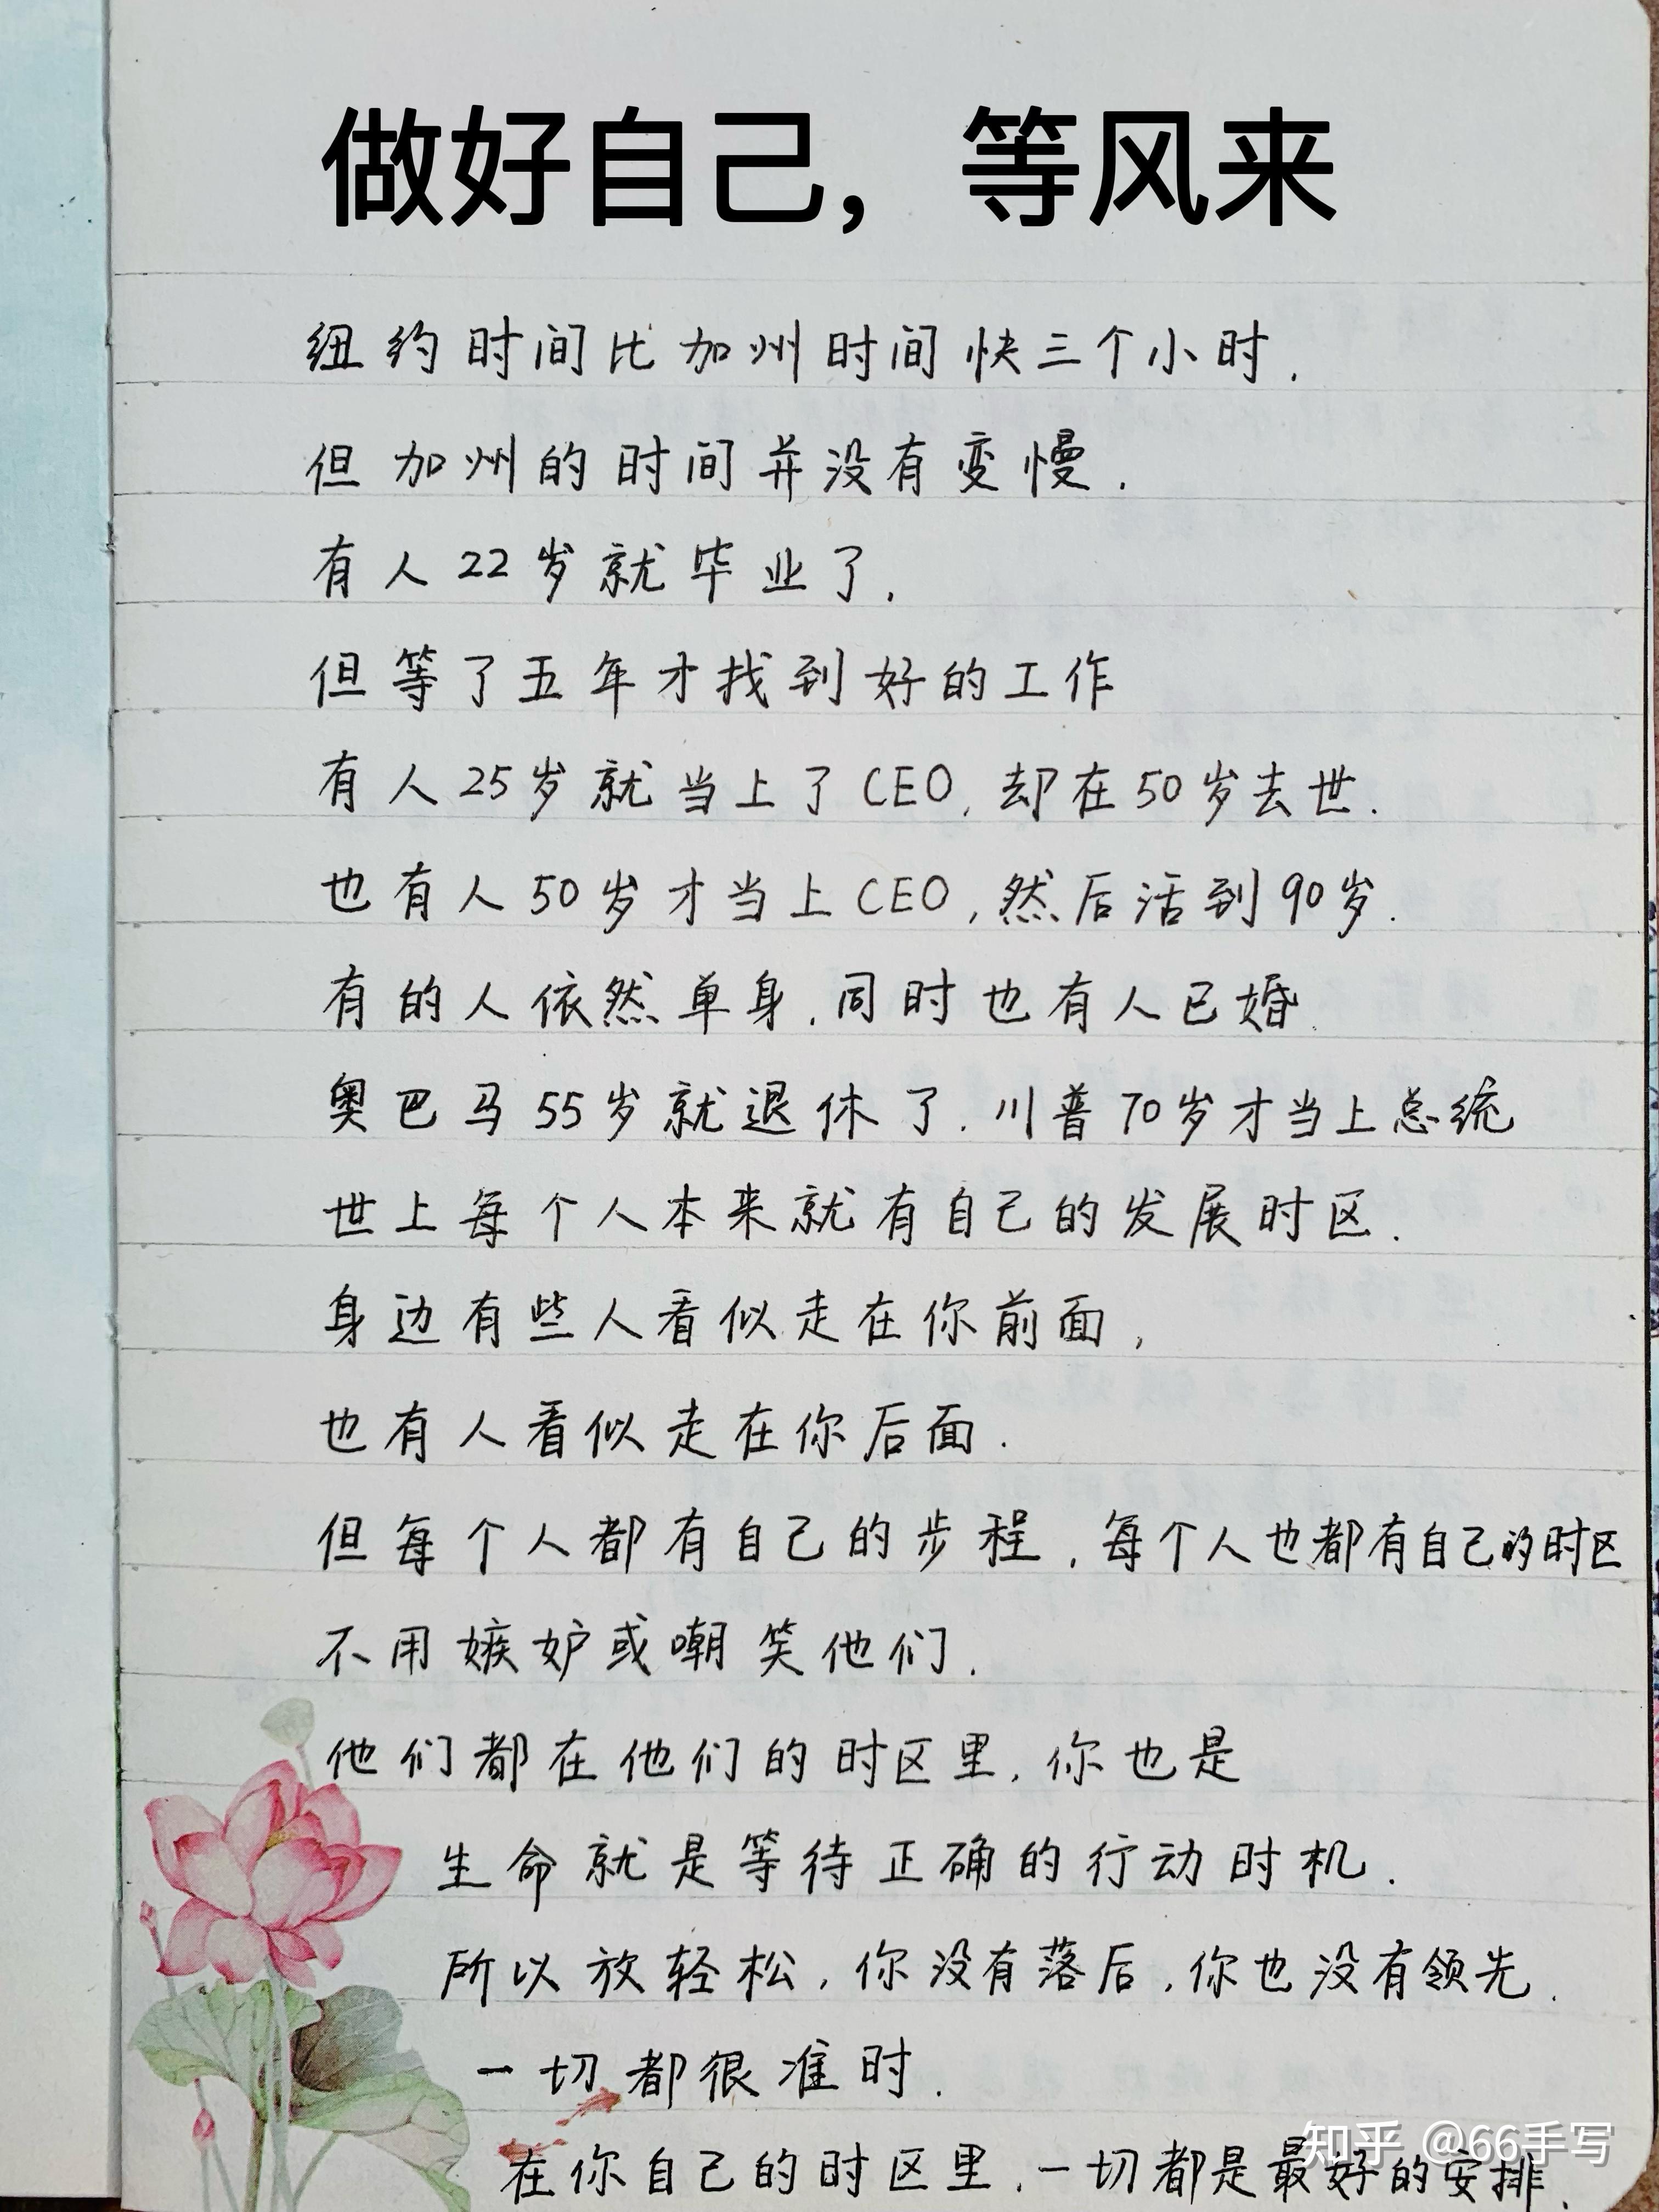 做好自己，等风来
纽约时间比加州时间快三个小时.
但加州的时间并没有变慢.
有人22岁就毕业了.
但等了五年才找到好的工作
有人25岁就当上了CEO,却在50岁去世.
也有人50岁才当上CEO,然后活到90岁.
有的人依然单身.同时也有人已婚.
奥巴马55岁就退休了.川普70岁才当上总统
世上每个人本来就有自己的发展时区.
身边有些人看似走在你前面,
也有人看似走在你后面.
但每个人都有自己的步程.每个人也都有自己的时区
不用嫉妒或嘲笑他们.
他们都在他们的时区里.你也是
生命就是等待正确的行动时机.
所以放轻松,你没有落后,你也没有领先.
一切都很准时.
在你自己的时区里.一切都是最好的安排.
知乎 @66手写